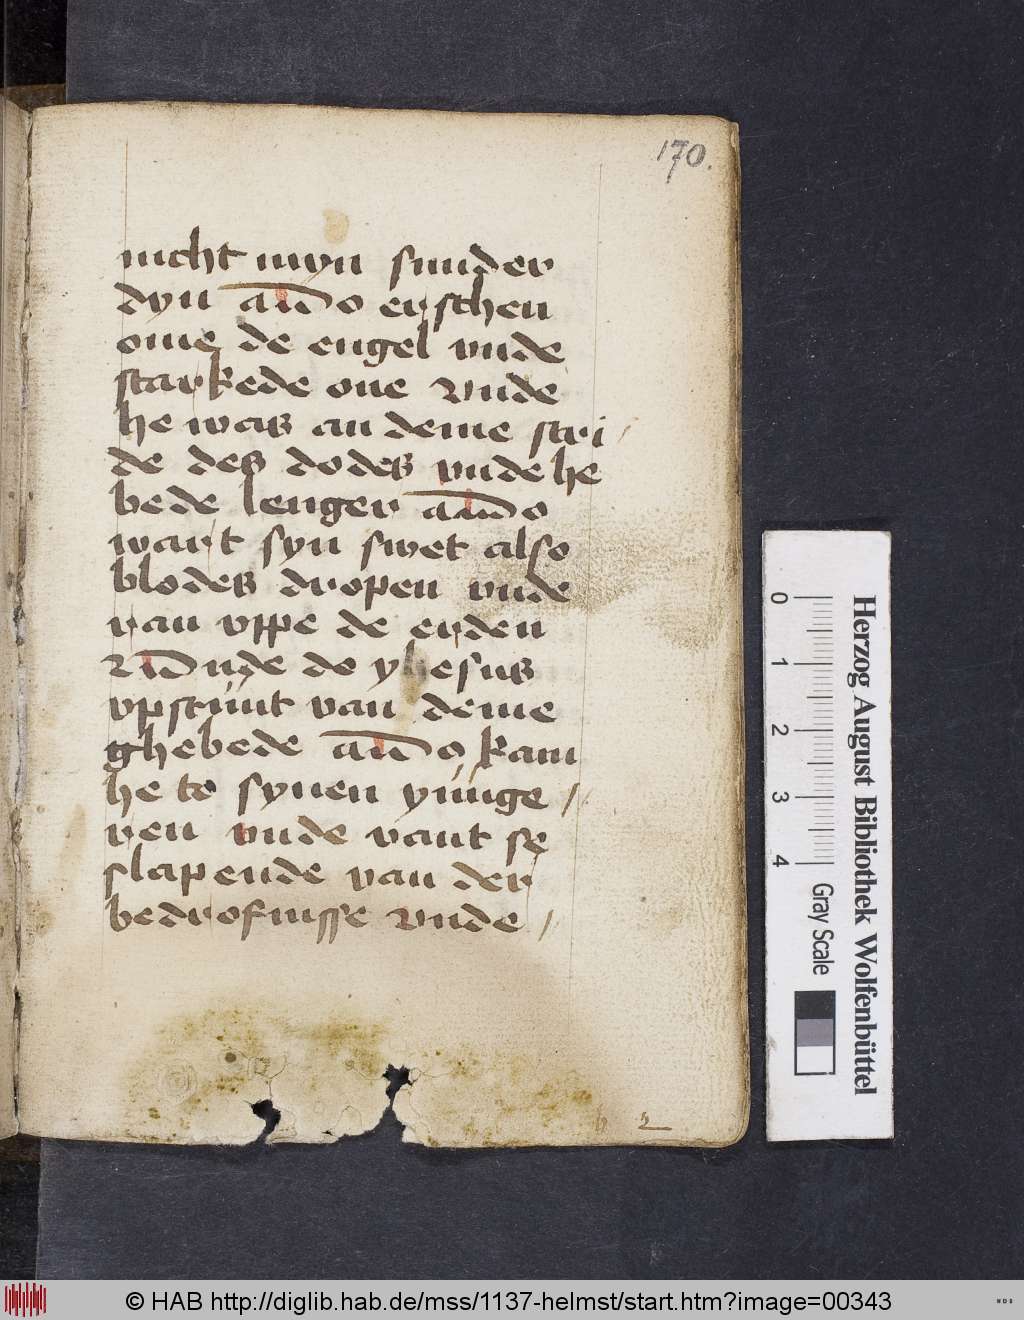 170.
nicht myn sunder
dyn Aldo erschen
ome de engel vnde
starkede one Vnde
he was an deme stri
de des dodes vnde he
bede lenger Aldo
wart syn swet also
blodes dropen vnde
ran vppe de erden
Vnde do yhesus
vpstunt van deme
ghebede Aldo kam
he to synen yunge
ren vnde vant se
slapende van der
bedrofnisse Vnde
b 2
Herzog August Bibliothek Wolfenbüttel
0 1 2 3 4 Gray Scale
© HAB http://diglib.hab.de/mss/1137-helmst/start.htm?image=00343